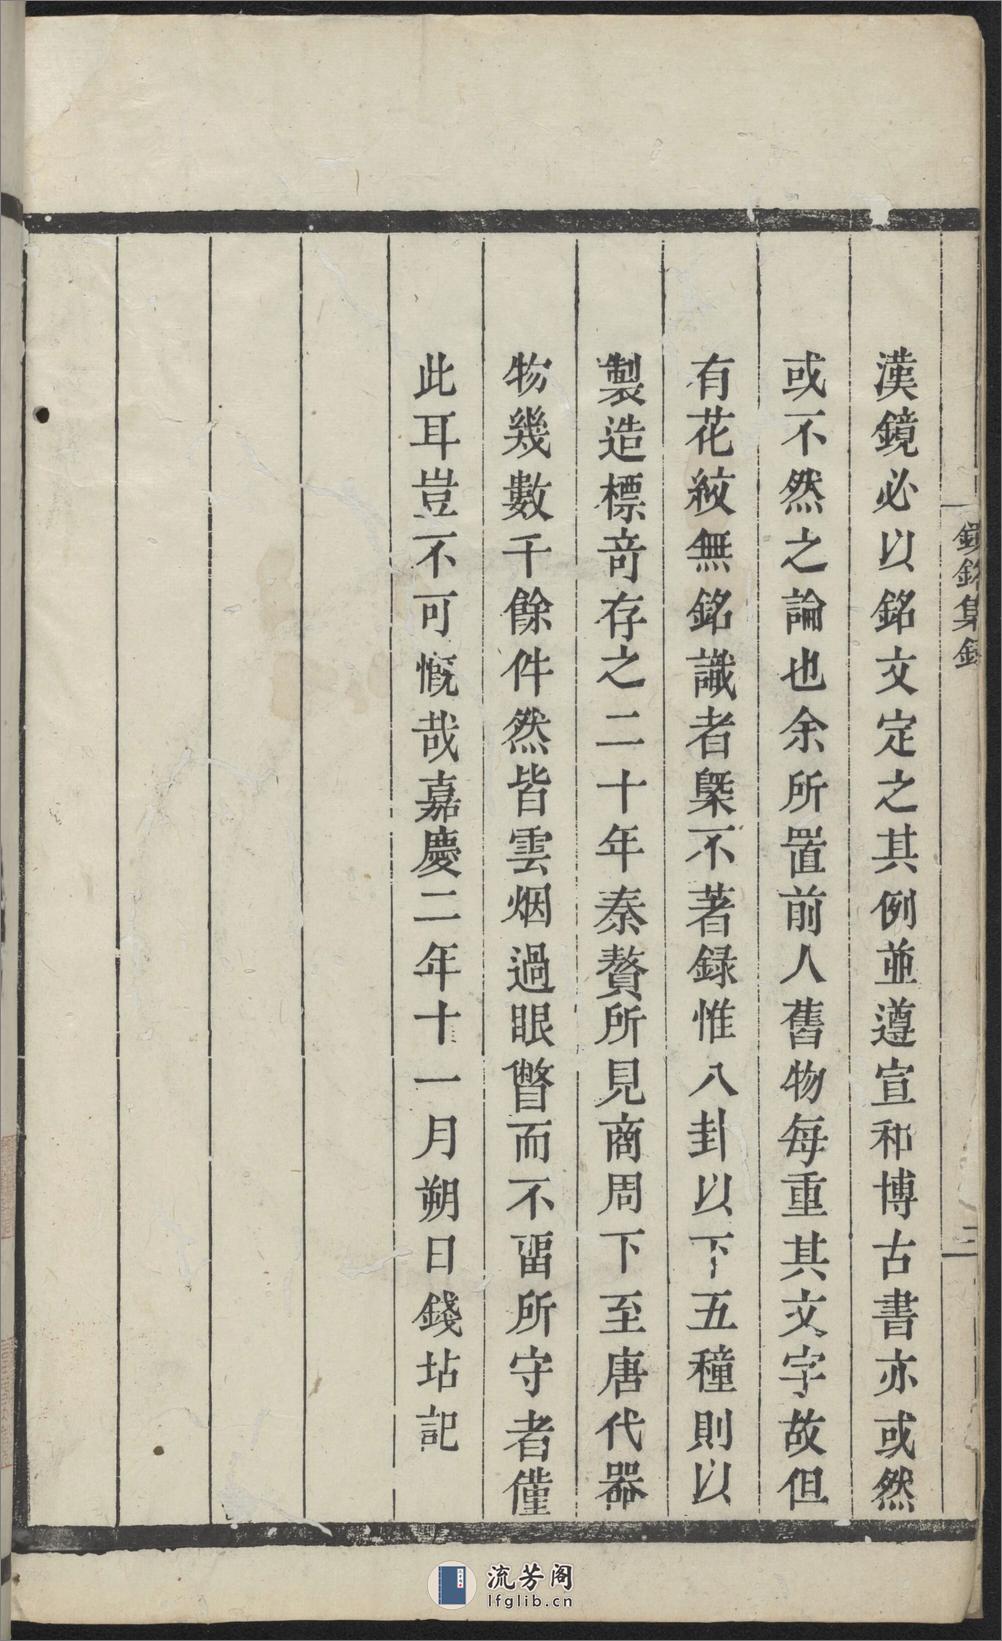 漢鏡必以銘文定之其例並遵宣和博古書亦或然
或不然之論也余所置前人舊物每重其文字故但
有花紋無銘識者槩不著録惟八卦以下五種則以
製造標竒存之二十年秦贅所見商周下至唐代器
物幾數千餘件然皆雲烟過眼瞥而不畱所守者僅
此耳豈不可慨哉嘉慶二年十一月朔日錢坫記
鏡銘集録
三
流芳阁
lfglib.cn